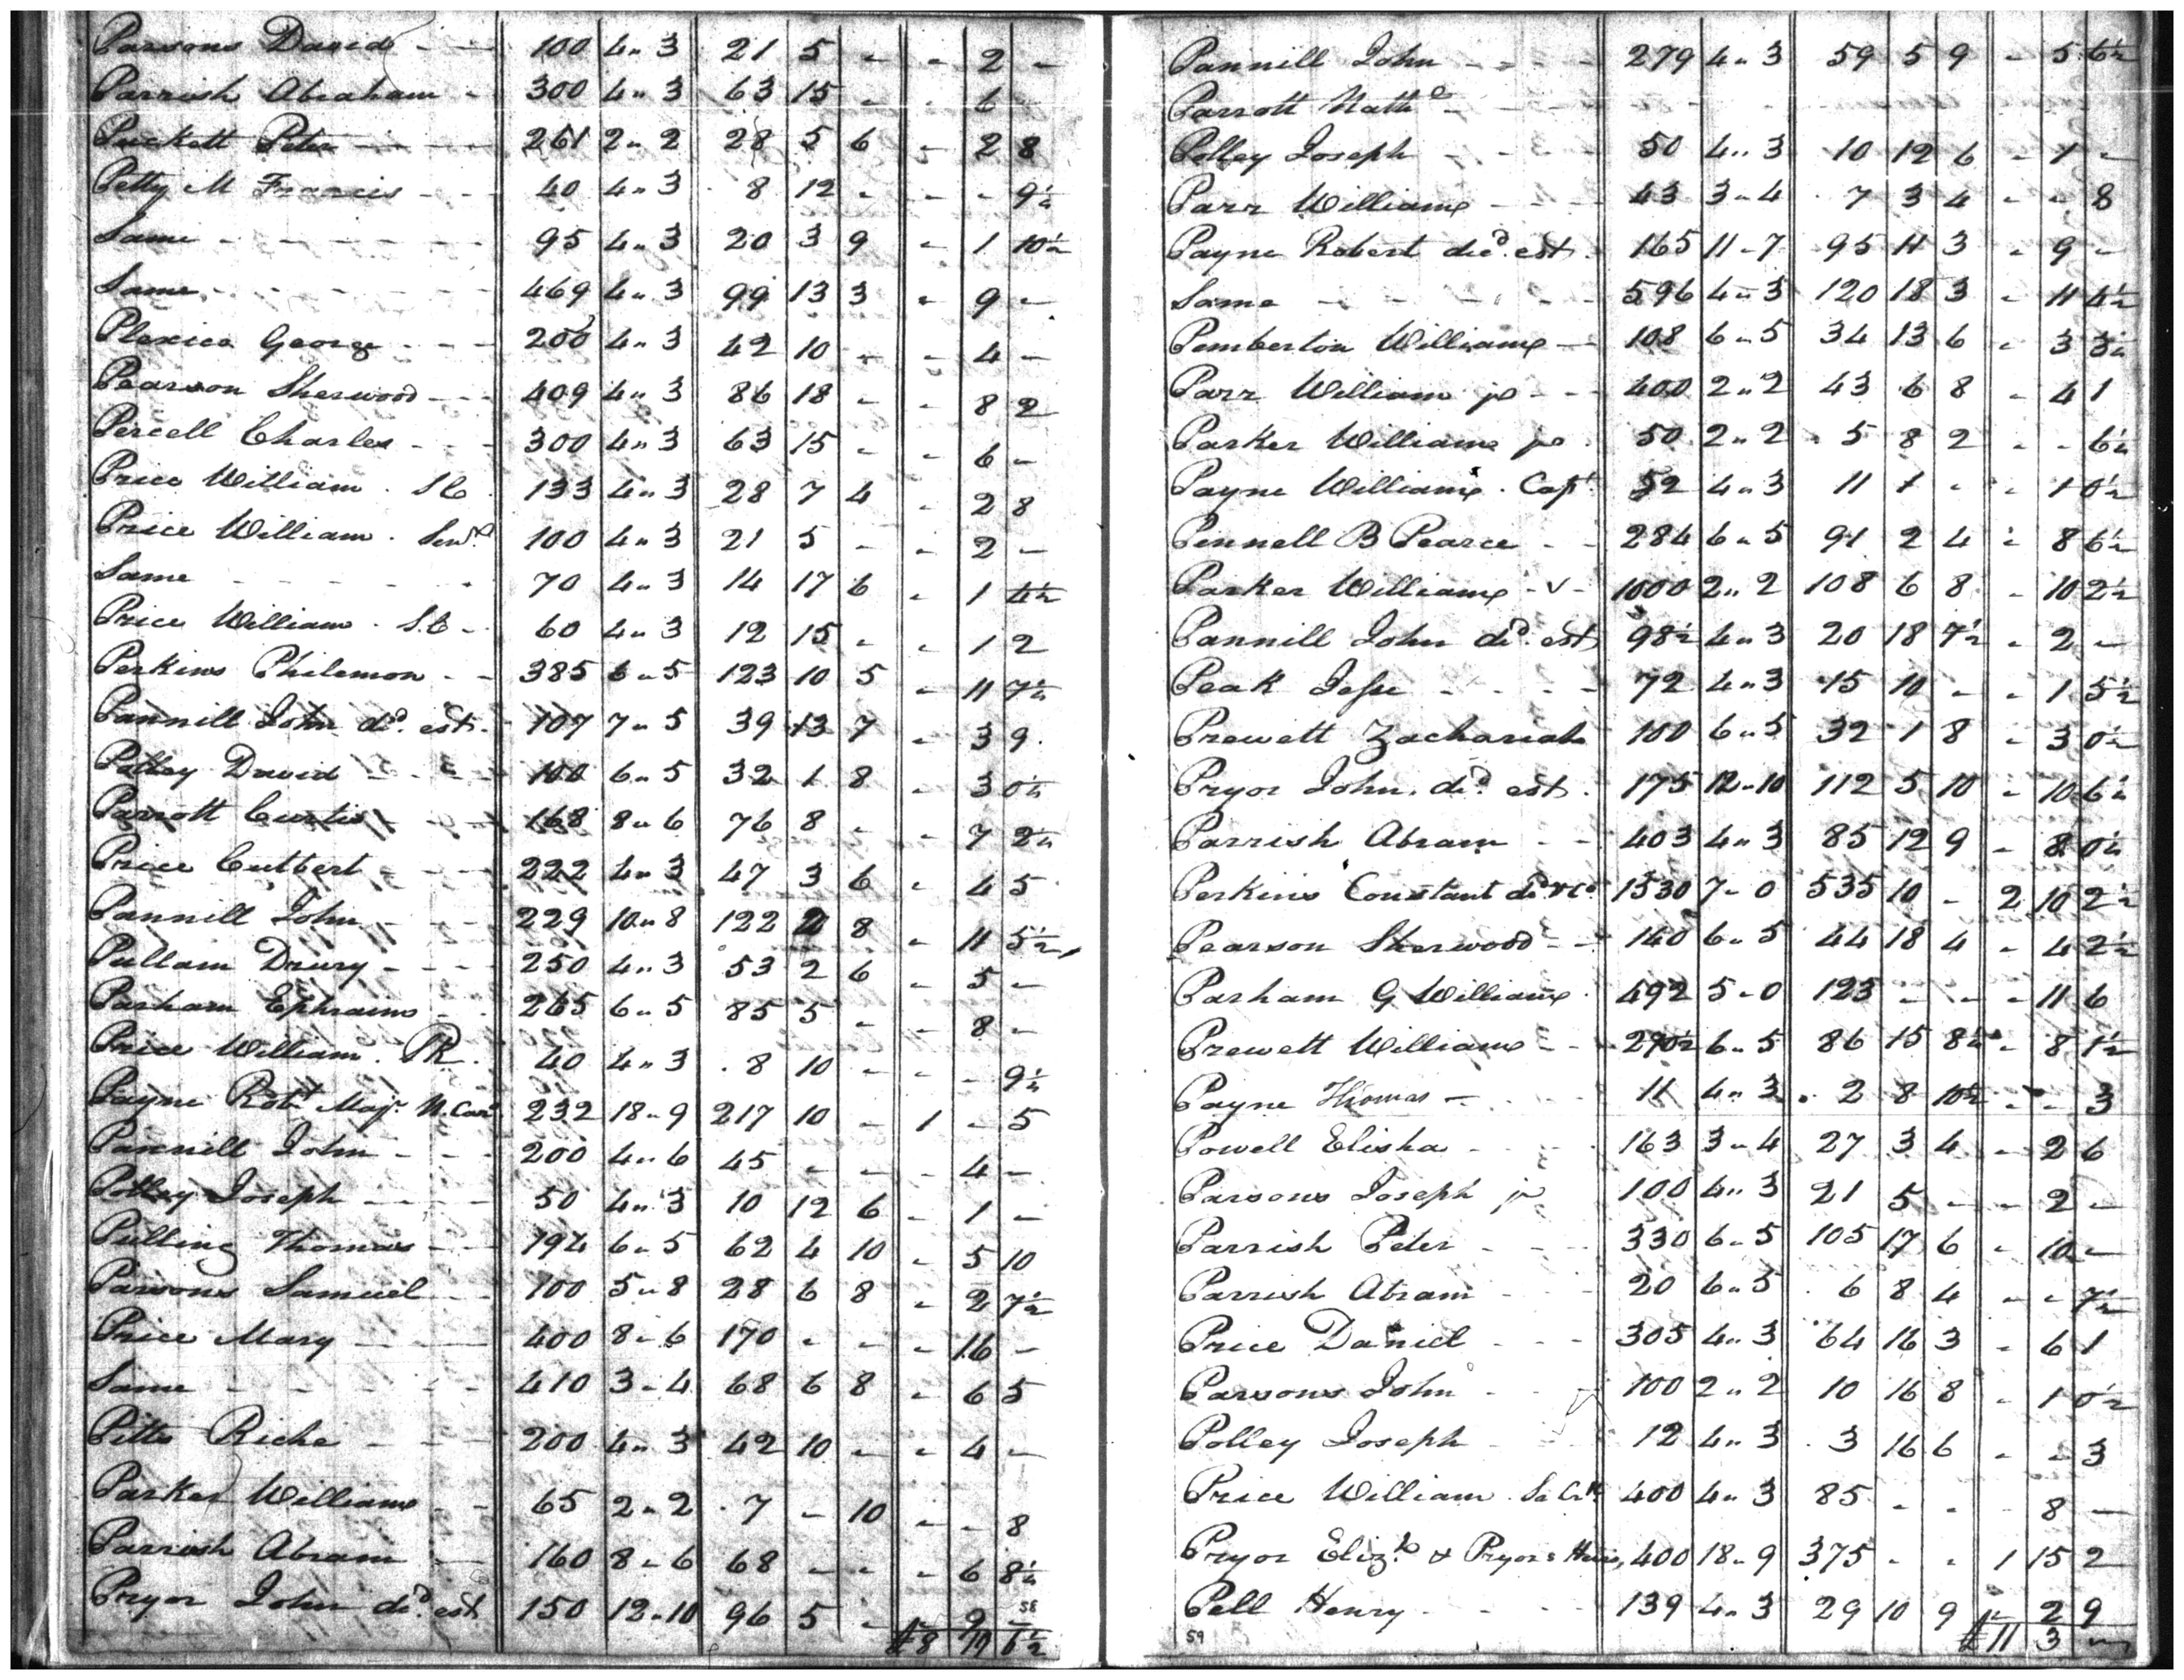 Parsons David - - 100 4..3 21 5 - - 2 -
Parrish Abraham - 300 4..3 63 15 - - 6 -
Puckett Peter - - 261 2..2 28 5 6 - 2 8
Petty M Francis - - 40 4..3 8 12 - - - 9½
Same - - - - 95 4..3 20 3 9 - 1 10½
Same - - - - 469 4..3 99 13 3 - 9 -
George - - 200 4..3 42 10 - - 4 -
Pearson Sherwood - - 409 4..3 86 18 - - 8 2
Percell Charles - - 300 4..3 63 15 - - 6 -
Price William . SC 133 4..3 28 7 4 - 2 8
Price William . Senr 100 4..3 21 5 - - 2 -
Same - - - - 70 4..3 14 17 6 - 1 4½
Price William . S.C - 60 4..3 12 15 - - 1 2
Perkins Philemon - - 385 6..5 123 10 5 - 11 7½
Pannill John decd. est. 107 7..5 39 13 7 - 3 9
Polley David - - 100 6..5 32 1 8 - 3 0½
Parrott Curtis - - 168 8..6 76 8 - - 7 2½
Price Cutbert - - 222 4..3 47 3 6 - 4 5
Pannill John - - 229 10..8 122 2 8 - 11 5½
Pullam Drury - - 250 4..3 53 2 6 - 5 -
Parham Ephraim - - 265 6..5 85 5 - - 8 -
Price William . PR . 40 4..3 8 10 - - - 9½
Payne Robt Majr. N. Caro 232 18..9 217 10 - 1 - 5
Pannill John - - 200 4..6 45 - - - 4 -
Polley Joseph - - 50 4..3 10 12 6 - 1 -
Pulling Thomas - - 194 6..5 62 4 10 - 5 10
Parsons Samuel - - 100 5..8 28 6 8 - 2 7½
Price Mary - - 400 8..6 170 - - - 16 -
Same - - - - 410 3..4 68 6 8 - 6 5
Pitts Riche - - 200 4..3 42 10 - - 4 -
Parker William - - 65 2..2 7 - 10 - - 8
Parrish Abram - 160 8..6 68 - - - 6 8½
Pryor John decd. est 150 12..10 96 5 - - 9 -
58
£8 19 6½
Pannill John - - 279 4..3 59 5 9 - 5 6½
Parrott Nathl - - - -
Polley Joseph - - 50 4..3 10 12 6 - 1 -
Parr William - - 43 3..4 7 3 4 - - 8
Payne Robert decd. est. 165 11..7 95 11 3 - 9 -
Same - - - - 596 4..3 120 18 3 - 11 4½
Pemberton William - 108 6..5 34 13 6 - 3 3½
Parr William jr - - 400 2..2 43 6 8 - 4 1
Parker William jr 50 2..2 5 8 2 - - 6½
Payne William . Capt. 52 4..3 11 1 - - 1 0½
Pinnell B Pearce - - 284 6..5 91 2 4 - 8 6½
Parker William - v - 1000 2..2 108 6 8 - 10 2½
Pannill John decd. est 98½ 4..3 20 18 7½ - 2 -
Peak Jesse - - 72 4..3 15 10 - - 1 5½
Prewett Zachariah 100 6..5 32 1 8 - 3 0½
Pryor John. decd. est. 175 12..10 112 5 10 - 10 6½
Parrish Abram - - 403 4..3 85 12 9 - 8 0½
Perkins Constant 1530 7..0 535 10 - 2 10 2½
Pearson Sherwood - - 140 6..5 44 18 4 - 4 2½
Parham G William . 492 5..0 123 - - - 11 6
Prewett William - - 270½ 6..5 86 15 8½ - 8 1½
Payne Thomas - - 11 4..3 2 8 10½ - - 3
Powell Elisha - - 163 3..4 27 3 4 - 2 6
Parsons Joseph jr 100 4..3 21 5 - - 2 -
Parrish Peter - - 330 6..5 105 17 6 - 10 -
Parrish Abram - - 20 6..5 6 8 4 - - 7½
Price Daniel - - 305 4..3 64 16 3 - 6 1
Parsons John - - 100 2..2 10 16 8 - 1 0½
Polley Joseph - - 12 4..3 3 16 6 - - 3
Price William . 400 4..3 85 - - - 8 -
Pryor Elizth & Pryors Heirs, 400 18..9 375 - - 1 15 2
Pell Henry - - 139 4..3 29 10 9 - 2 9
59
£11 3 -